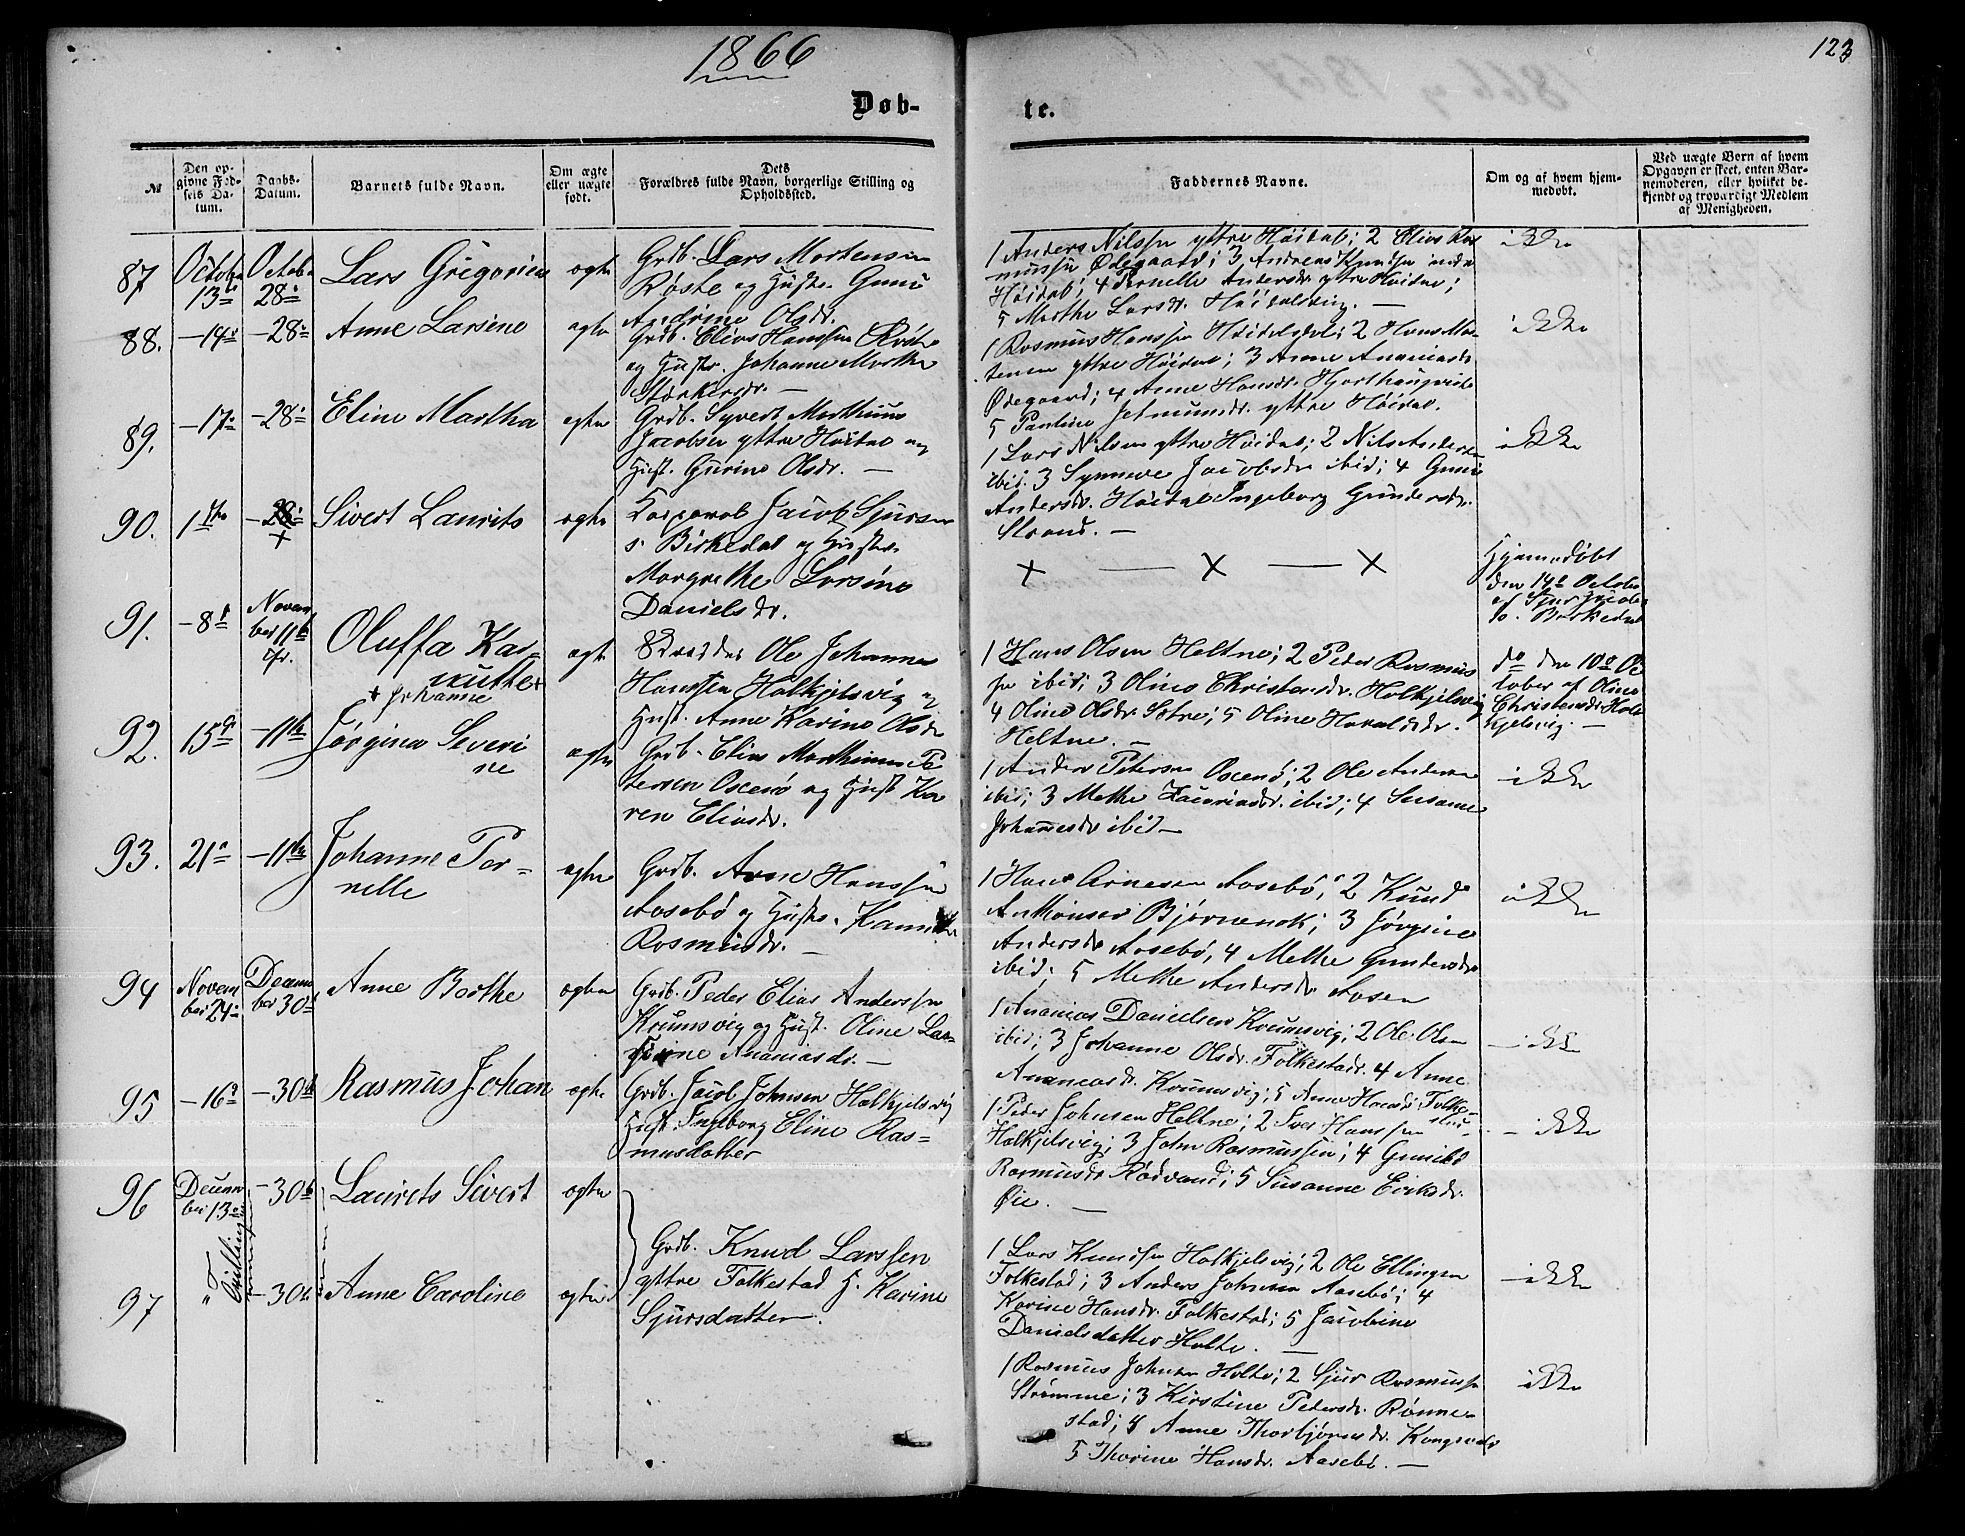 1866
123
Døb-
te.
№
Den op-
givne Fød-
sels Da-
tum.
Daabs-
Datum.
Barnets fulde Navn.
Om ægte
eller uægte
født.
Dets
Forældres fulde Navn, borgerlige Stilling og
Opholdssted.
Faddernes Navne.
Om og af hvem hjem-
medøbt.
Ved uægte Børn af hvem
Opgaven er skeet, enten Bar-
nemoderen, eller hvilket be-
kjendt og troværdigt Medlem
af Menigheden.
87
Octob.
13de
Octob.
28de
Lars Gregorius
ægte
Grdb. Lars Mortensen
Røste og Hustr. Guni
Andrine Olsdr.
1 Anders Nilssen yttre Høidal; 2 Elias Ras
mussen Ødegaard; 3 Andreas Knudsen indre
Høidal; 4 Pernelle Andersdr. yttre Høidal;
5 Marthe Larsdr. Høidalsvig. —
ikke
88.
—14de
—28de
Anne Larsine
ægte
Grdb. Elias Hanssen Røste
og Hustr. Johanne Marthe
Størkersdr. —
1 Rasmus Hanssen Høidalsdal; 2 Hans Mar
tenen yttre Høidal; 3 Anne Ananiasdr
Ødegaard; 4 Anne Hansdr. Hjorthaugvik
5 Pauline Jetmundsdr. yttre Høidal.
ikke
89.
—17de
—28de
Eline Martha
ægte
Grdb. Syvert Marthinus
Jacobsen yttre Høidal og
Hust. Gurine Olsdr. —
1 Lars Nilsen yttre Høidal; 2 Nils Andersen
ibid. 3 Synneve Jacobsdr ibid; 4 Guni
Andersdr. Høidal Ingeborg Gundersdr.
Strand. —
ikke
90.
1ste
—28de
+
Sivert Laurits
ægte
Korporal Jacob Sjursen
s. Birkedal og Hustr.
Margrethe Larsine
Danielsdr.
+ — + — +
Hjemmedøbt
den 14de October
af Sjur Jacobs
s. Birkedal
91.
—8de
Novem
ber 11te
Oluffa Kar-
nuthe+
+ Johanne
ægte
Skredder Ole Johannes
Hanssen Halkjelsvig og
Hust. Anne Karine Olsdr
1 Hans Olsen Heltne; 2 Peder Rasmus
sen ibid; 3 Oline Christensdr. Halkjelsvig
4 Oline Olsdr. Sætre; 5 Oline Haraldsdr.
Heltne. —
do den 10de Oc
tober af Oline
Christensdr. Hal
kjelsvig. —
92.
15de
—11te
Jørgine Severi
ne
ægte
Grdb. Elias Marthinus Pe
tersen Oxenø og Hust Ka
ren Eliasdr.
1 Anders Petersen Oxenø; 2 Ole Andersen
ibid; 3 Methe Zacariasdr. ibid; 4 Susanne
Johannesdr ibid —
ikke
93.
21de
—11te
Johanne Per-
nelle
ægte
Grdb. Arne Hanssen
Aasebø og Hustr.
Rasmusdr. —
1 Hans Arnesen Aasebø; 2 Knud
Anthonsen Bjørnenak; 3 Jørgine
Andersdr Aasebø, 4 Methe Gundersdr
ibid. 5 Methe Andersdr Aasen
ikke
94
Novem
ber 24de
Decem
ber 30te
Anne Berthe
ægte
Grdb. Peder Elias Anderssen
Krumsvig og Hust. Oline Las-
Ananiasdr. —
1 Ananias Danielsen Krumsvig; 2 Ole Olsen
ibid; 3 Johanne Olsdr. Folkestad. 4 Anne
Ananiasdr. Krumsvig; 5 Anne Hansdr Folke-
stad.
—ikke
95
—16de
—30te
Rasmus Johan
ægte
Grdb. Jacob Johnsen Halkjelsvig
Hust. Ingeborg Eline Ras-
musdatter
1 Peder Johnsen Heltne; 2 Iver Hanssen
Halkjelsvig; 3 John Rasmussen; 4 Gunild
Rasmusdr Rødvand; 5 Susanne Eriksdr.
Øie. —
—ikke
96
Decem
ber 13de
—30te
Laurets Sivert
ægte
Tvillinger
Grdb. Knud Larssen
yttre Folkestad H. Karine
Sjursdatter.
1 Lars Knudsen Halkjelsvig; 2 Ole Ellingsen
Folkestad; 3 Anders Johnsen Aasebø; 4
Karine Hansdr. Folkestad; 5 Jacobine
Danielsdatter Holte. —
—ikke
97
"
—30te
Anne Caroline
ægte
1 Rasmus Johnsen Holte; 2 Sjur Rasmussen
Strømme; 3 Kirstine Pedersdr. Rønne-
stad; 4 Anne Thorbjørnsdr. Kongsvold
5 Thorine Hansdr. Aasebø. —
ikke